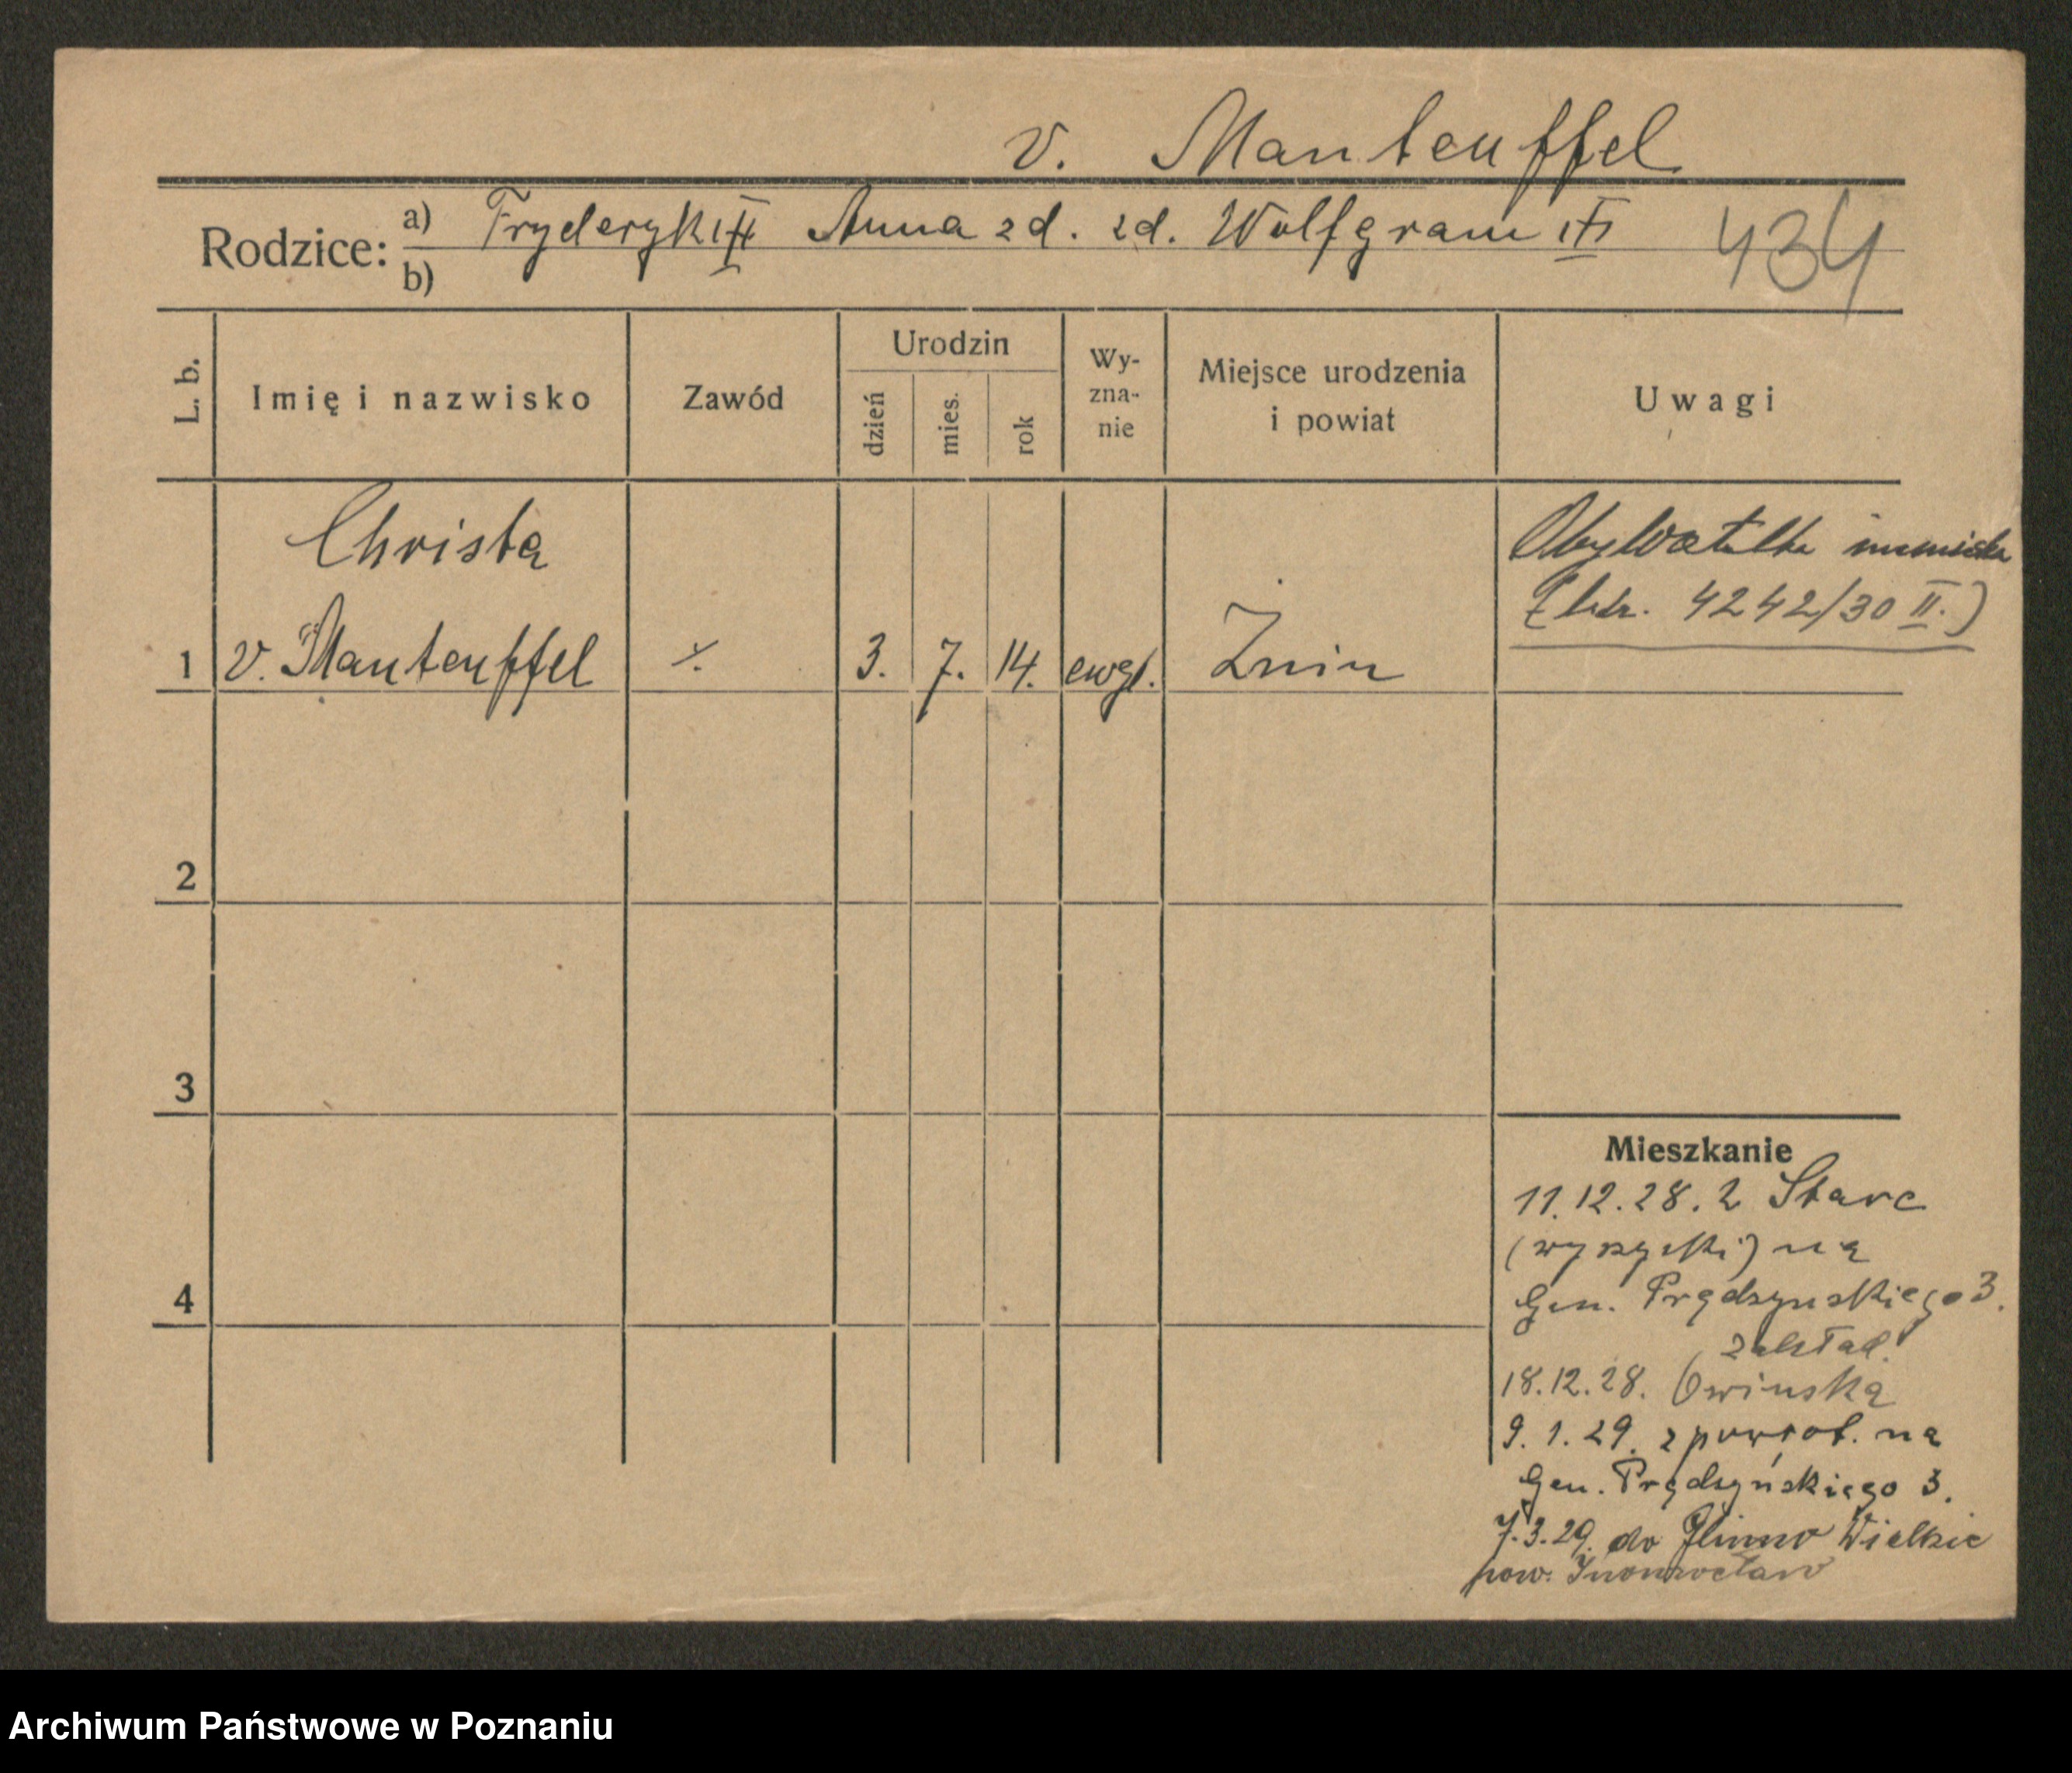 v. Manteuffel
Rodzice: a) Fryderyk Anna zd. zd. Wolfgram
b)
434
L. b.
Imię i nazwisko
Zawód
Urodzin
dzień
mies.
rok
Wy-
zna-
nie
Miejsce urodzenia
i powiat
Uwagi
Christa
1 v. Manteuffel ⁒ 3. 7. 14. ewgl. Żnin
Obywatelka niemiecka
4242/30 II.)
2
3
4
Mieszkanie
11.12.28. z Starc
na
Gen. Prądzyńskiego 3.
zakład.
18.12.28. Owińska
9.1.29. z powrot. na
Gen. Prądzyńskiego 3.
7.3.29. do Glinno Wielkie
pow. Inowrocław
Archiwum Państwowe w Poznaniu